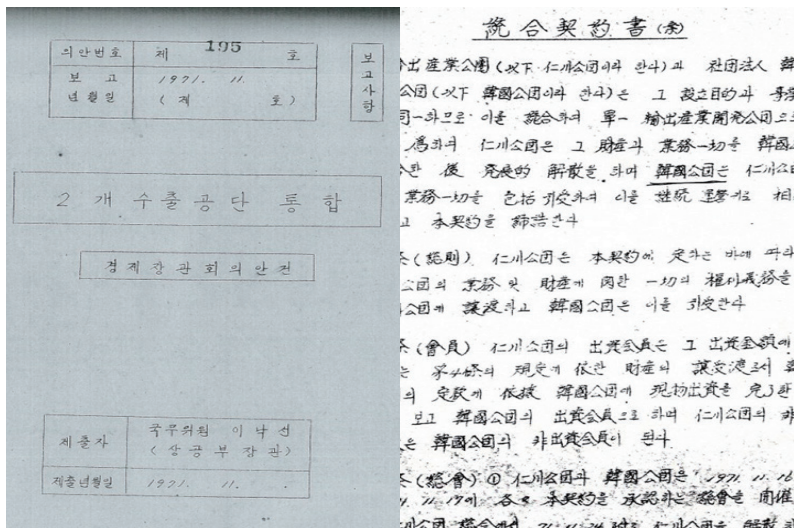 의안번호 제 195 호
보고
년월일
1971. 11.
(제 호)
보고사항
2개 수출공단 통합
경제장관회의안건
제출자
국무위원 이낙선
(상공부장관)
제출년월일 1971. 11. .
統合契約書(余)
出産業公團(以下 仁川公団이라 한다)과 社団法人 韓
公団(以下 韓國公団이라 한다)은 그 設立目的과 事業
同一하므로 이를 統合하여 單一 輸出産業開発公団으
爲하여 仁川公団은 그 財産과 業務一切를 韓國
한 後 発展的 解散을 하며 韓國公団은 仁川公
業務一切을 包括 引受하여 이를 継続 運営키로 相
고 本契約을 締結한다
(総則) 仁川公団은 本契約에 定하는 바에 따라
公団의 業務 및 財産에 関한 一切의 権利義務을
公団에 譲渡하고 韓國公団은 이를 引受한다
(會員) 仁川公団의 出資会員은 그 出資金額에
는 第4條의 規定에 依한 財産의 譲受渡로서
의 定款에 依據 韓國公団에 現物出資을 完了한
보고 韓國公団의 出資会員으로 하며 仁川公団의 非
은 韓國公団의 非出資会員이 된다
(総會) ① 仁川公団과 韓國公団은 1971. 11. 16
11. 17에 各々 本契約을 承認하는 総會을 開催